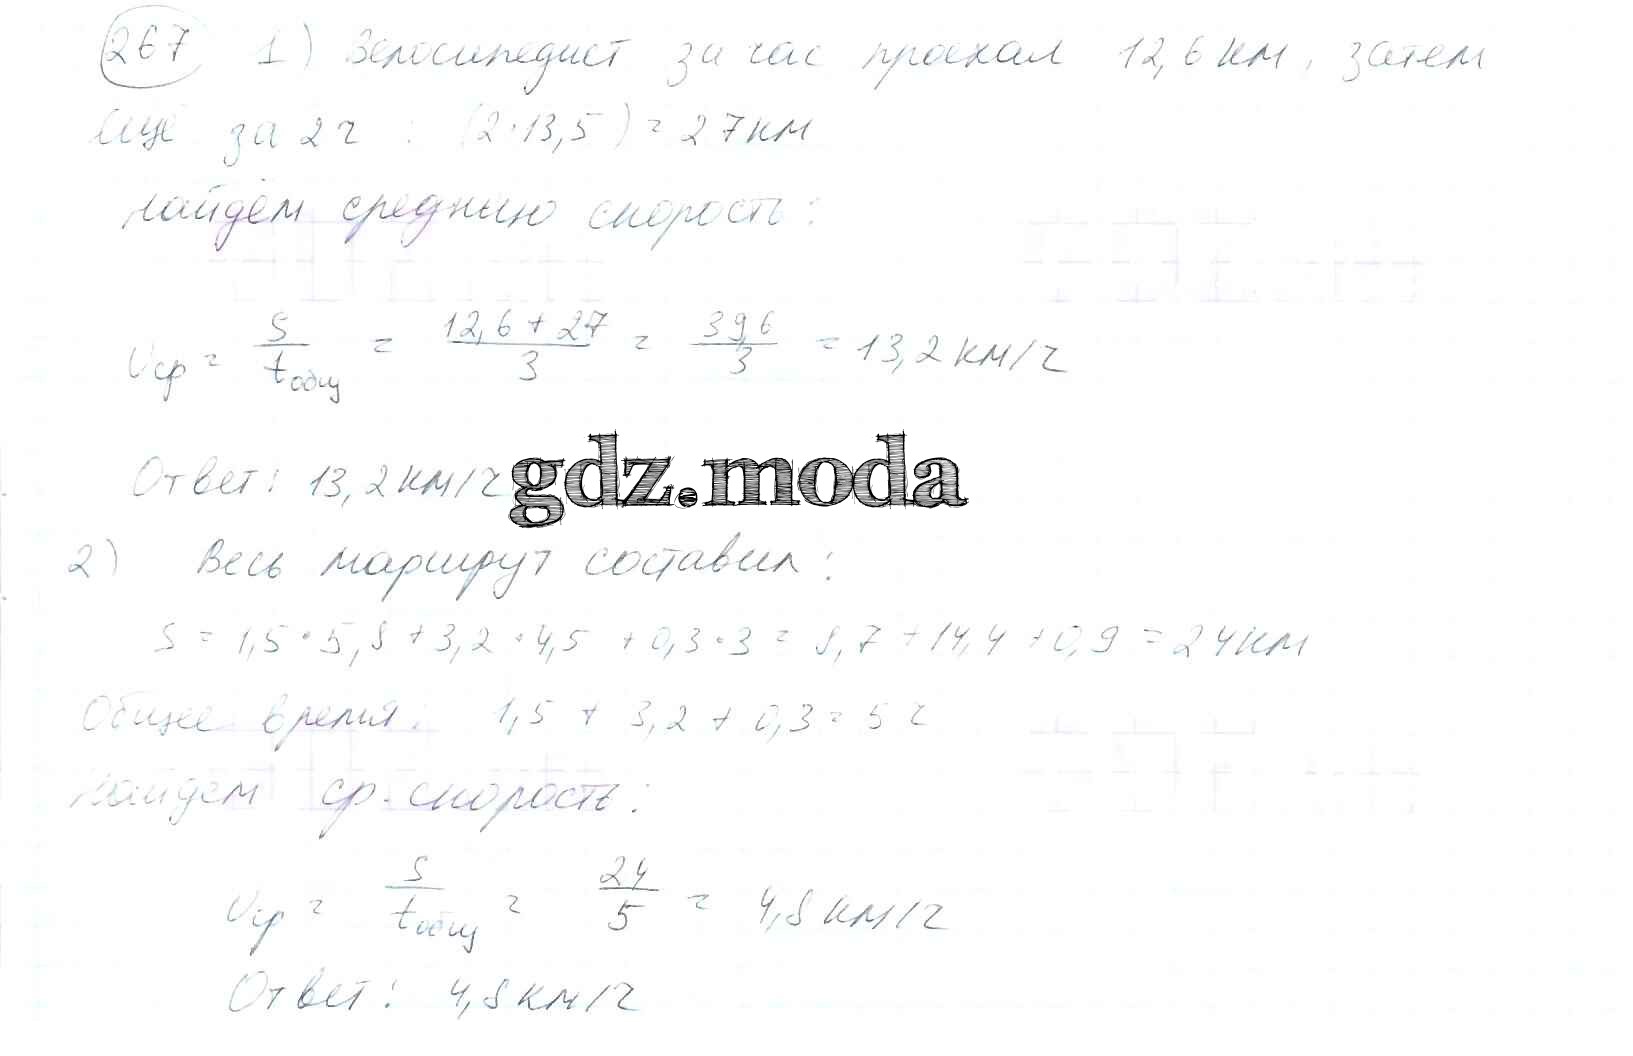 267 1) Велосипедист за час проехал 12,6 км, затем
ещё за 2 ч : (2·13,5) = 27 км
найдём среднюю скорость:
υср = S/tобщ = (12,6 + 27)/3 = 39,6/3 = 13,2 км/ч
Ответ: 13,2 км/ч
gdz.moda
2) Весь маршрут составил:
S = 1,5·5,8 + 3,2·4,5 + 0,3·3 = 8,7 + 14,4 + 0,9 = 24 км
Общее время: 1,5 + 3,2 + 0,3 = 5 ч
Найдем ср. скорость:
υср = S/tобщ = 24/5 = 4,8 км/ч
Ответ: 4,8 км/ч